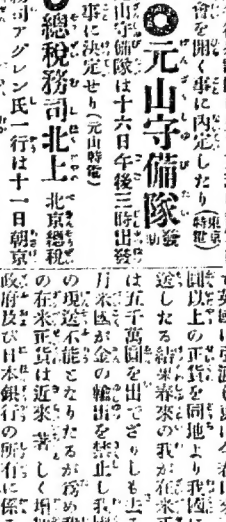 會を開く事に內定したり（東京特電）
◎元山守備隊出發
山守備隊は十六日午後三時出發
事に決定せり（元山特電）
總稅務司北上 北京總稅
務司アグレン氏一行は十一日朝京
圓以上の正貨を同地より我國に
送したる結果春來の我が在米正
は五千萬圓を出でざりしも去る
月米國が金の輸出を禁止し我國
の現送不能となりたるが爲め我
の在米正貨は近來著しく增
政府及び日本銀行の所有に係